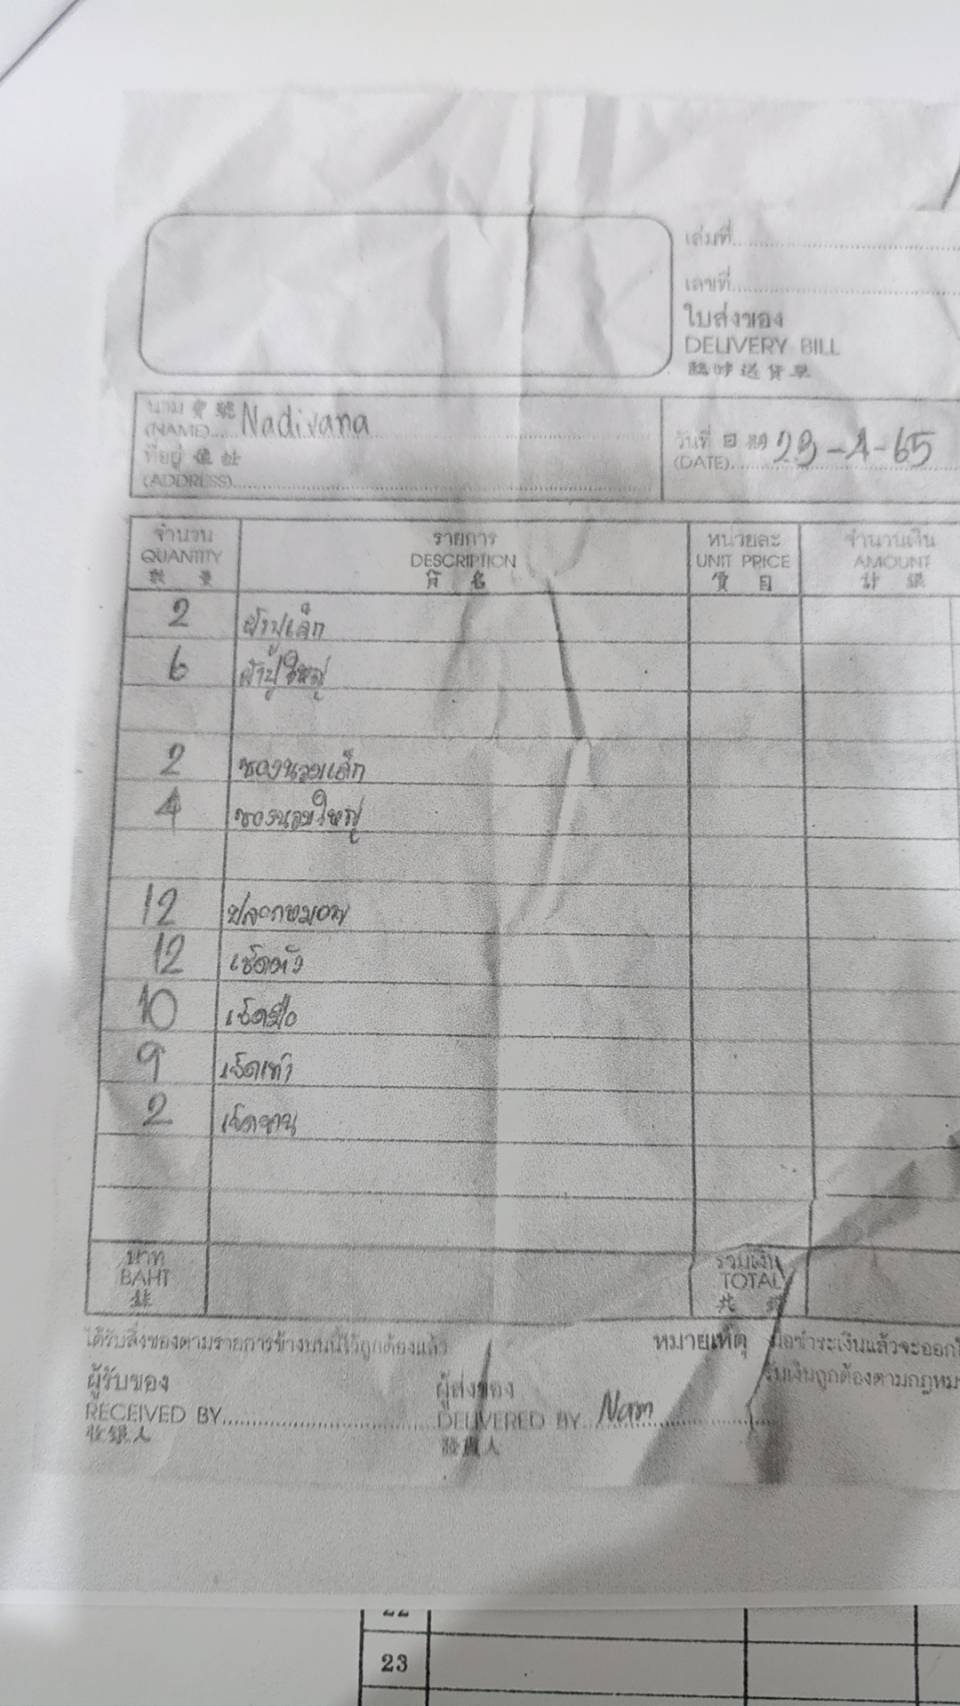 เล่มที่
เลขที่
ใบส่งของ
DELIVERY BILL
臨時送貨單
นาม 寶號 Nadivana
(NAME)
ที่อยู่ 住址
(ADDRESS)
วันที่ 日期 23-4-65
(DATE)
จำนวน รายการ หน่วยละ จำนวนเงิน
QUANTITY DESCRIPTION UNIT PRICE AMOUNT
數量 貨名 價目 計銀
2 ผ้าปูเล็ก
6 ผ้าปูใหญ่
2 ซองนวมเล็ก
4 ซองนวมใหญ่
12 ปลอกหมอน
12 เช็ดตัว
10 เช็ดมือ
9 เช็ดเท้า
2 เช็ดจาน
บาท รวมเงิน
BAHT TOTAL
ได้รับสิ่งของตามรายการข้างบนนี้ไว้ถูกต้องแล้ว
หมายเหตุ เมื่อชำระเงินแล้วจะออกใ
รับเงินถูกต้องตามกฎหมา
ผู้รับของ ผู้ส่งของ
RECEIVED BY DELIVERED BY Nam
收銀人 發貨人
22
23